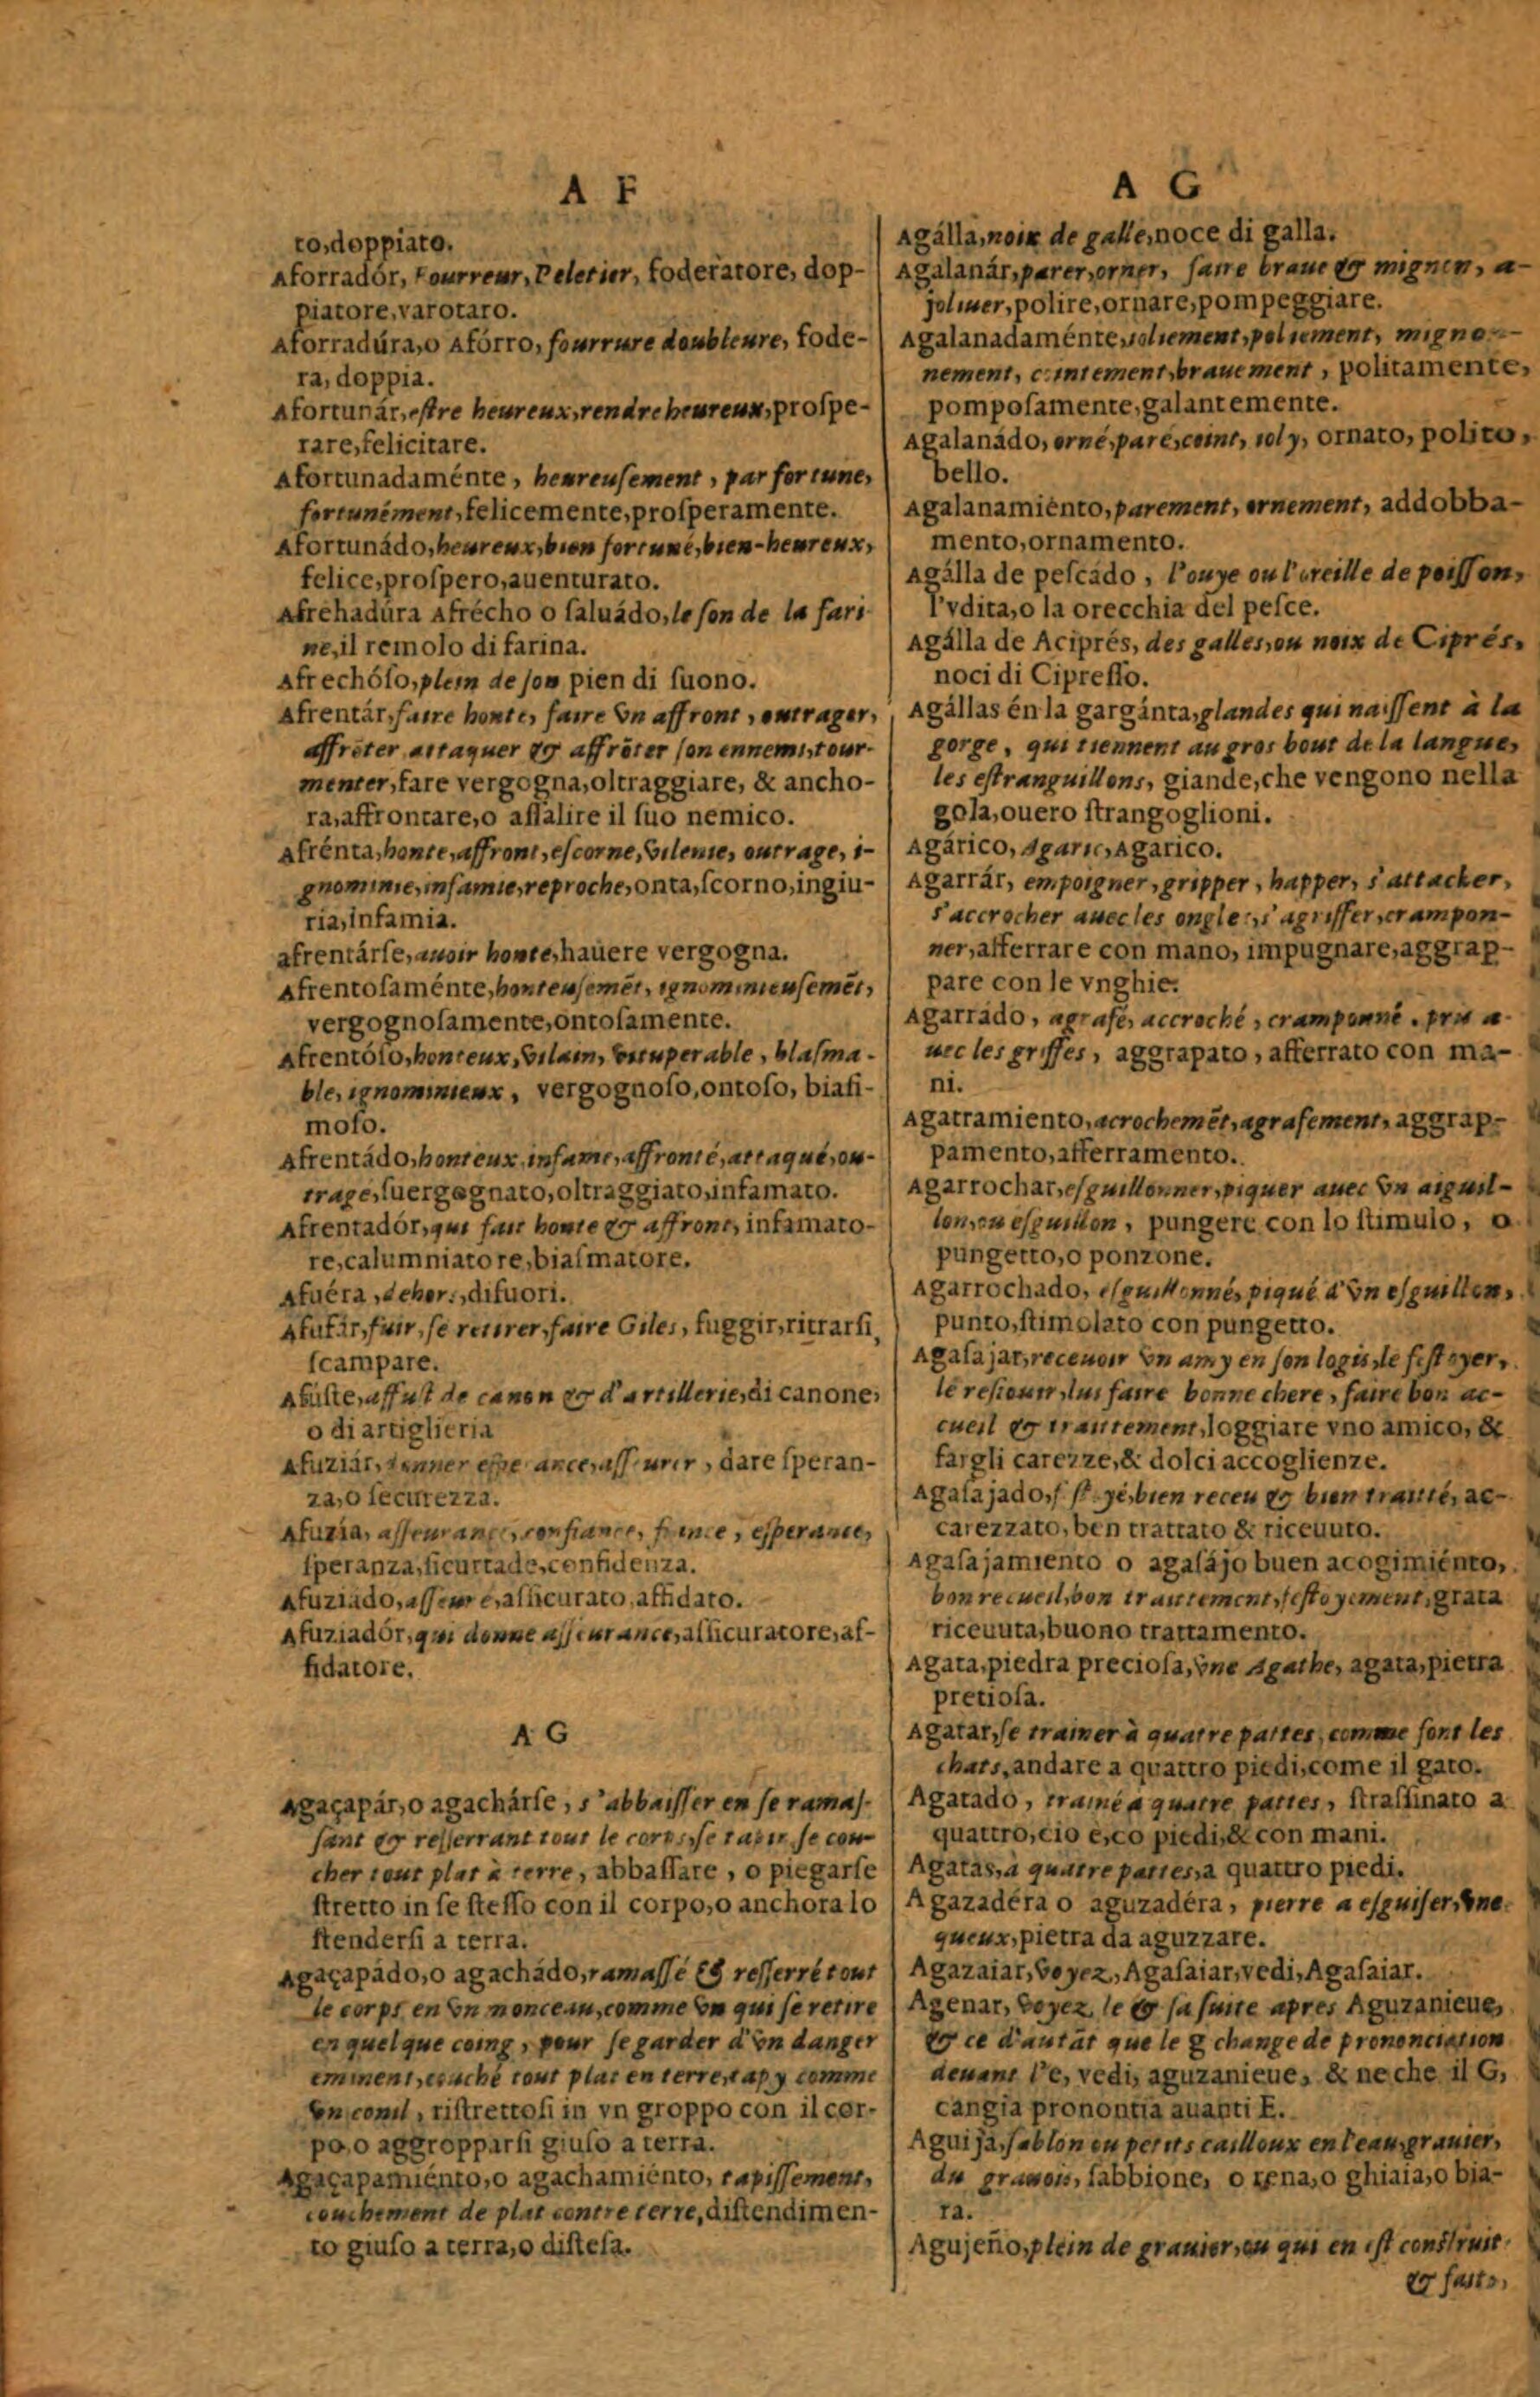 A F
to,doppiato.
Aforradór, Fourreur, Peletier, foderatore, dop-
piatore,varotaro.
Aforradúra,o Afórro, fourrure doubleure, fode-
ra, doppia.
Afortunár,estre heureux,rendre heureux,proſpe-
rare,felicitare.
Afortunadaménte, heureuſement, par fortune,
fortunément,felicemente,proſperamente.
Afortunádo,heureux,bien fortuné,bien-heureux,
felice,proſpero,auenturato.
Afrehadúra Afrécho o ſaluádo,le ſon de la fari
ne,il remolo di farina.
Afrechóſo,plein de ſon pien di ſuono.
Afrentár,faire honte, faire vn affront, outrager,
affrõter attaquer & affrõter ſon ennemi,tour-
menter,fare vergogna,oltraggiare, & ancho-
ra,affrontare,o aſſalire il ſuo nemico.
Afrénta,honte,affront,eſcorne,vilenie, outrage, i-
gnominie,infamie,reproche,onta,ſcorno,ingiu-
ria,infamia.
afrentárſe,auoir honte,hauere vergogna.
Afrentoſaménte,honteuſemẽt, ignominieuſemẽt,
vergognoſamente,ontoſamente.
Afrentóſo,honteux,vilain, vituperable, blaſma-
ble, ignominieux, vergognoſo,ontoſo, biaſi-
moſo.
Afrentádo,honteux infame,affronté,attaqué,ou-
trage,ſuergognato,oltraggiato,infamato.
Afrentadór,qui fait honte & affront, infamato-
re,calumniatore,biaſmatore.
Afuéra,dehors,difuori.
Afufár,fuir,ſe retirer,faire Giles, fuggir,ritrarſi,
ſcampare.
Afúſte,affuſt de canon & d'artillerie,di canone,
o di artiglieria
Afuziár, donner eſperance,aſſeurer, dare ſperan-
za,o ſecurezza.
Afuzía, aſſeurance,confiance, fiance, eſperance,
ſperanza,ſicurtade,confidenza.
Afuziado,aſſeuré,aſſicurato,affidato.
Afuziadór,qui donne aſſeurance,aſſicuratore,af-
fidatore.
A G
Agaçapár,o agachárſe, s'abbaiſſer en ſe ramaſ-
ſant & reſſerrant tout le corps,ſe tapir ſe cou-
cher tout plat à terre, abbaſſare, o piegarſe
ſtretto in ſe ſteſſo con il corpo,o anchora lo
ſtenderſi a terra.
Agaçapádo,o agachádo,ramaſſé & reſſerré tout
le corps en vn monceau,comme vn qui ſe retire
en quelque coing, pour ſe garder d'vn danger
eminent,couché tout plat en terre,tapy comme
vn conil, riſtrettoſi in vn groppo con il cor-
po,o aggropparſi giuſo a terra.
Agaçapamiénto,o agachamiénto, tapiſſement,
couchement de plat contre terre,diſtendimen-
to giuſo a terra,o diſteſa.
A G
Agálla,noix de galle,noce di galla.
Agalanár,parer,orner, faire braue & mignon, a-
joliuer,polire,ornare,pompeggiare.
Agalanadaménte,joliement,poliement, migno-
nement, cointement,brauement, politamente,
pompoſamente,galantemente.
Agalanádo, orné,paré,coint, ioly, ornato, polito,
bello.
Agalanamiénto,parement, ornement, addobba-
mento,ornamento.
Agálla de peſcádo, l'ouye ou l'oreille de poiſſon,
l'vdita,o la orecchia del peſce.
Agálla de Aciprés, des galles,ou noix de Ciprés,
noci di Cipreſſo.
Agállas én la gargánta,glandes qui naiſſent à la
gorge, qui tiennent au gros bout de la langue,
les eſtranguillons, giande,che vengono nella
gola,ouero ſtrangoglioni.
Agárico,Agaric,Agarico.
Agarrár, empoigner,gripper, happer, s'attacher,
s'accrocher auec les ongles,s'agriffer,crampon-
ner,afferrare con mano, impugnare,aggrap-
pare con le vnghie.
Agarrado, agrafé, accroché, cramponné. pris a-
uec les griffes, aggrapato, afferrato con ma-
ni.
Agatramiento,acrochemẽt,agrafement, aggrap-
pamento,afferramento.
Agarrochar,eſguillonner,piquer auec vn aiguil-
lon,ou eſguillon, pungere con lo ſtimulo, o
pungetto,o ponzone.
Agarrochado, eſguillonné,piqué d'vn eſguillon,
punto,ſtimolato con pungetto.
Agaſajar,receuoir vn amy en ſon logis,le feſtoyer,
le reſiouir,lui faire bonne chere, faire bon ac-
cueil & traittement,loggiare vno amico, &
fargli carezze,& dolci accoglienze.
Agaſajado,feſtoyé,bien receu & bien traitté, ac-
carezzato,ben trattato & riceuuto.
Agaſajamiento o agaſájo buen acogimiénto,
bon recueil,bon traittement,feſtoyement,grata
riceuuta,buono trattamento.
Agata,piedra precioſa,vne Agathe, agata,pietra
pretioſa.
Agatar,ſe trainer à quatre pattes, comme font les
chats,andare a quattro piedi,come il gato.
Agatado, trainé a quatre pattes, ſtraſſinato a
quattro,cio è,co piedi,& con mani.
Agatas,a quatre pattes,a quattro piedi.
Agazadéra o aguzadéra, pierre a eſguiſer,vne
queux,pietra da aguzzare.
Agazaiar,voyez,Agaſaiar,vedi,Agaſaiar.
Agenar, voyez le & ſa ſuite apres Aguzanieue,
& ce d'autãt que le g change de prononciation
deuant l'e, vedi, aguzanieue, & ne che il G,
cangia pronontia auanti E.
Aguija,ſablon ou petits cailloux en l'eau,grauier,
du grauois, ſabbione, o rena,o ghiaia,o bia-
ra.
Agujeño,plein de grauier,ou qui en eſt conſtruit
& faits,